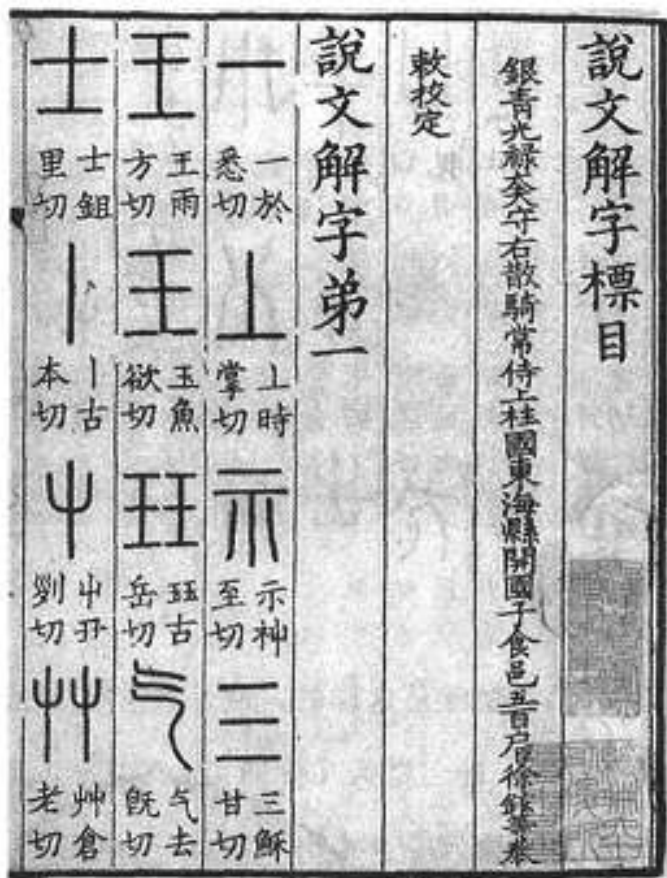 說文解字標目
銀青光祿大夫守右散騎常侍上柱國東海縣開國子食邑五百戶臣徐鉉等奉
敕挍定
說文解字弟一
一 一於悉切 丄 丄時掌切 示 示神至切 三 三穌甘切
王 王雨方切 玉 玉魚欲切 玨 玨古岳切 气 气去旣切
士 士鉏里切 丨 丨古本切 屮 屮丑列切 艸 艸倉老切